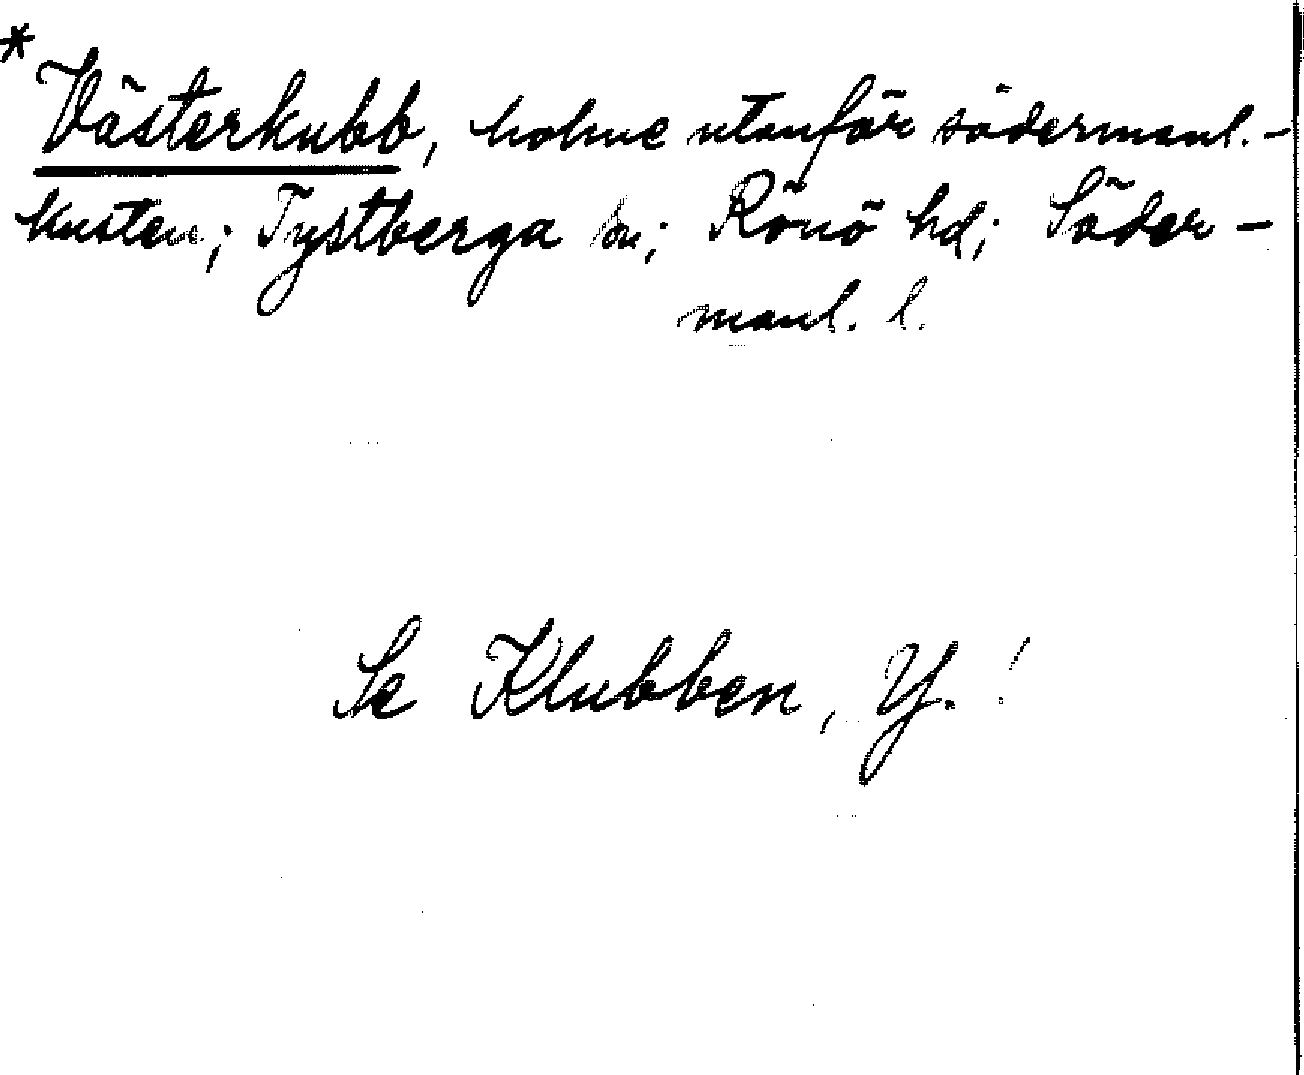 * Västerkubb, holme utanför södermanl.-
kusten; Tystberga sn; Rönö hd; Söder-
manl. l.
Se Klubben, Y.!